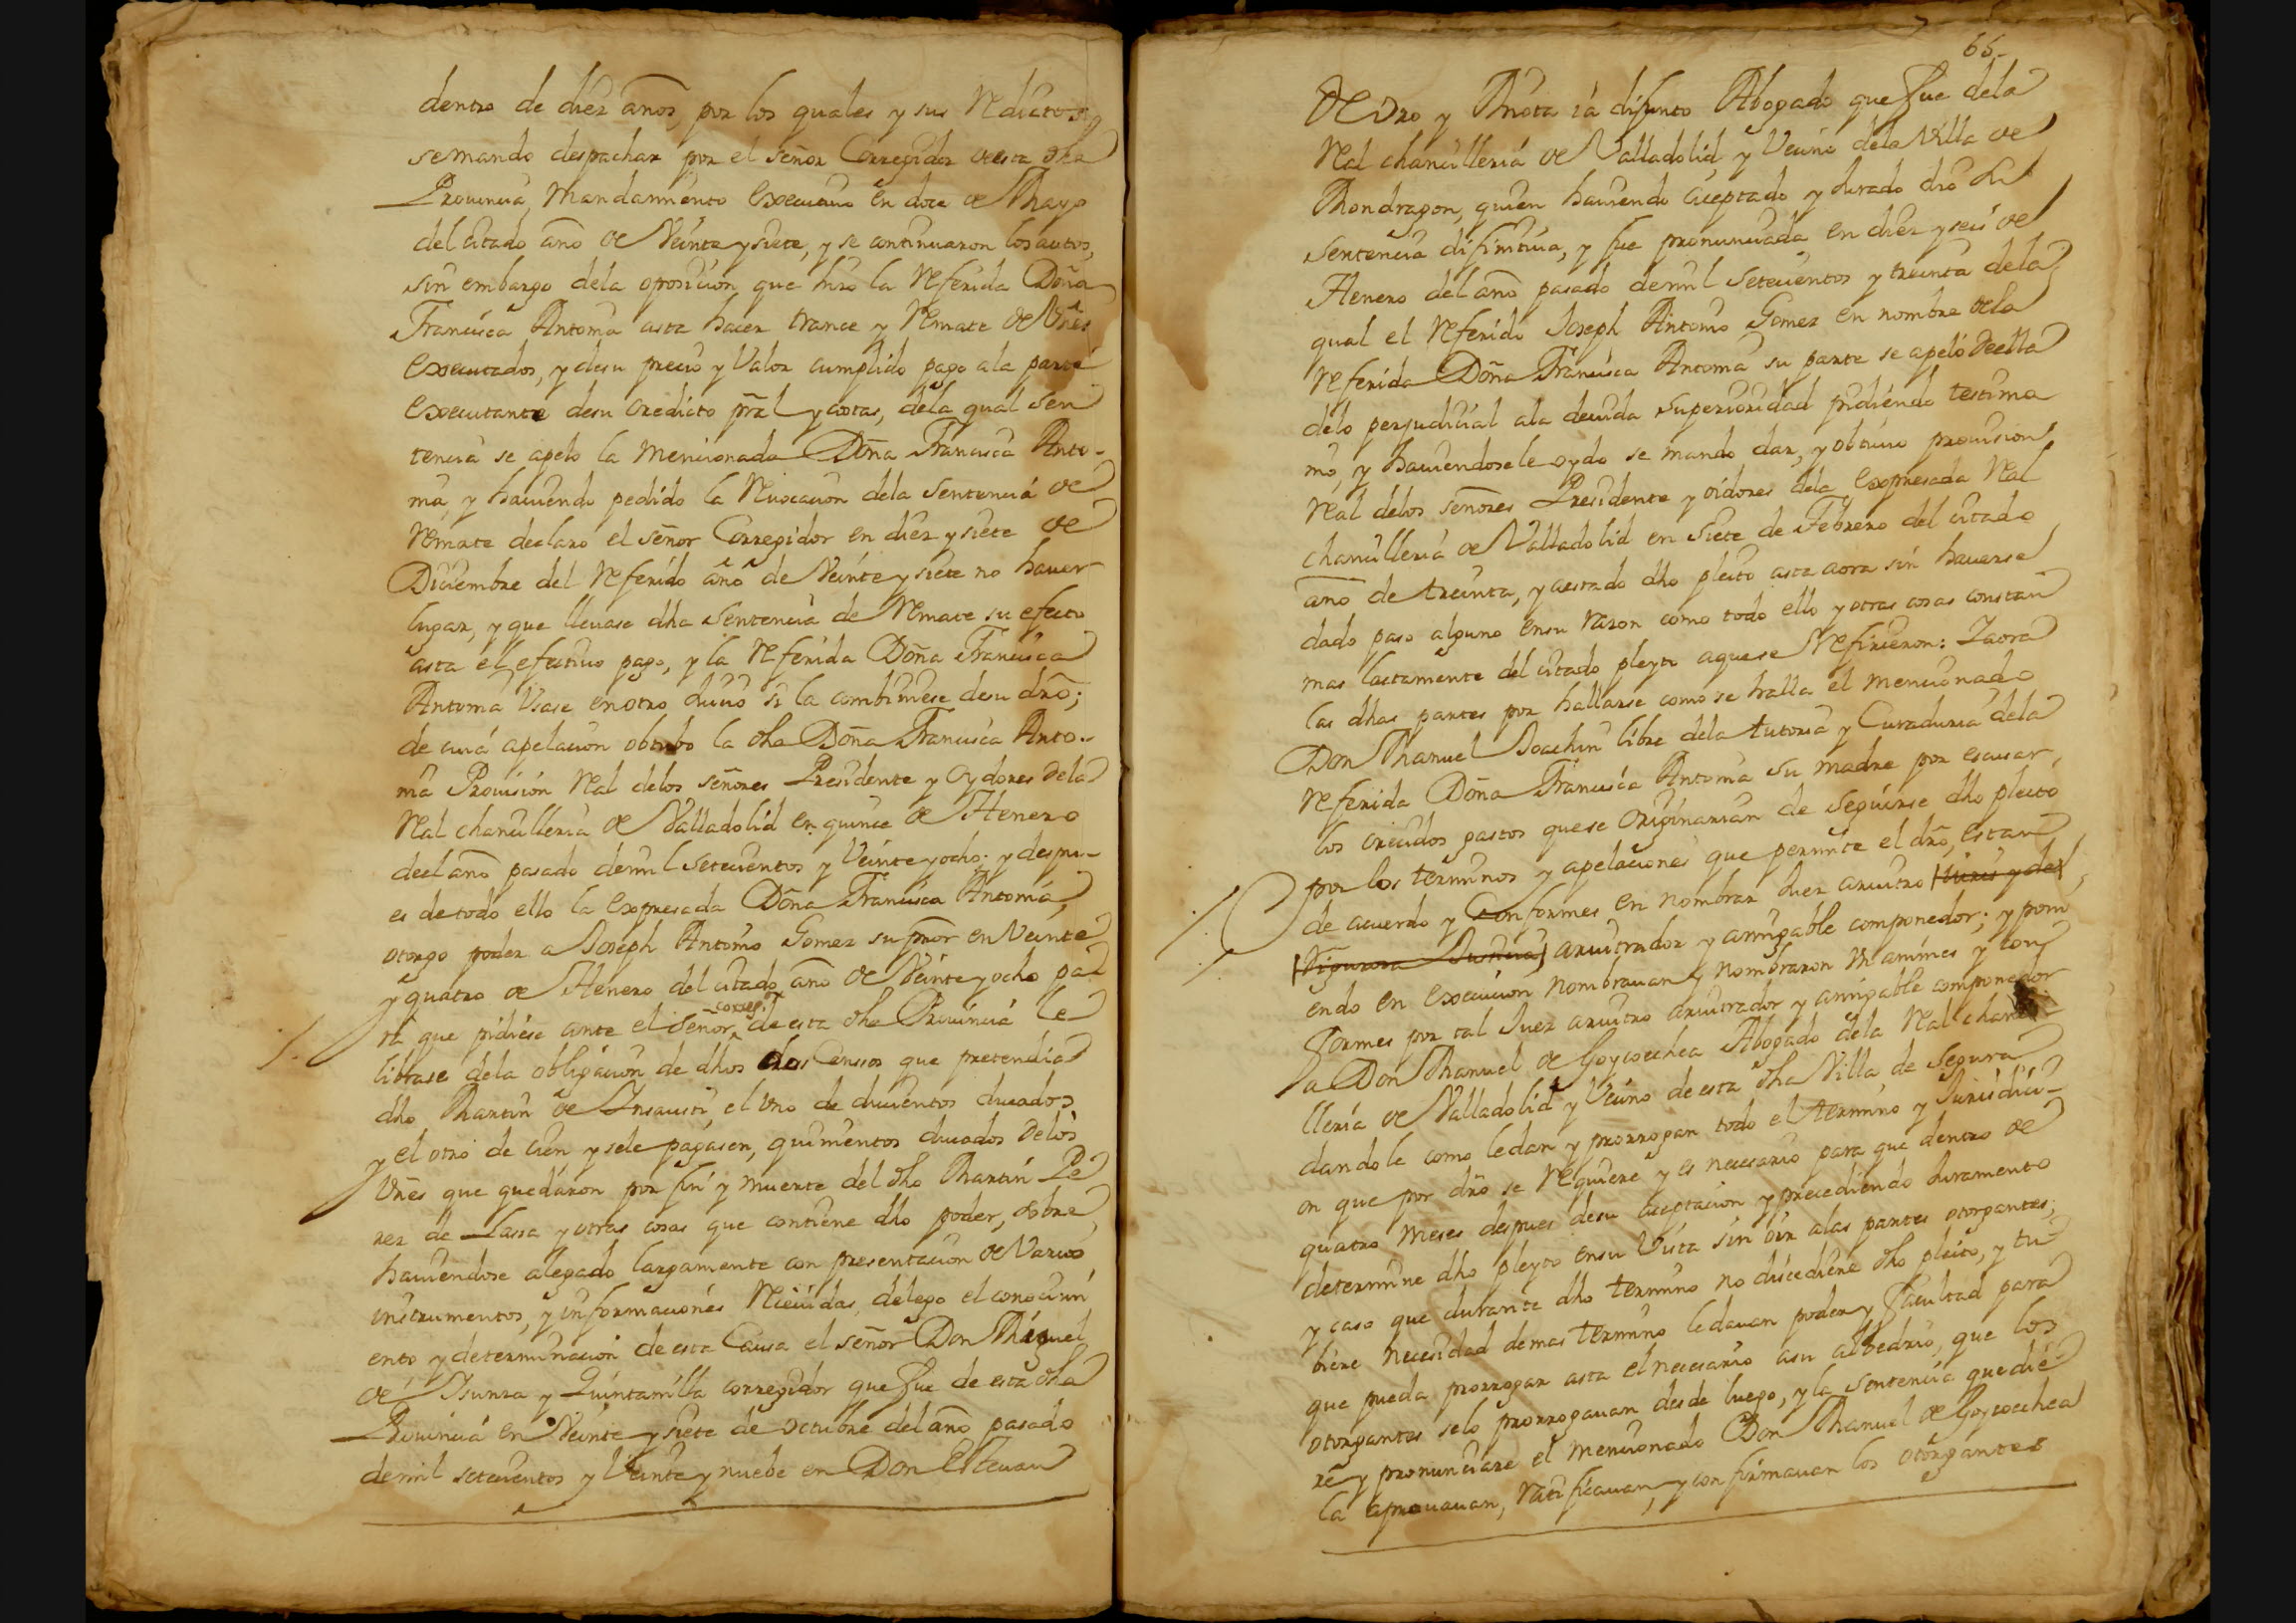 dentro de diez años, por los quales y sus Reductos
se mando despachar por el señor Corregidor de esta dha
Prouincia, Mandamiento executiuo en doce de Mayo
del citado año de Veinte y siete, y se continuaron los autos,
sin embargo dela oposicion que hizo la Referida Doña
Francisca Antonia asta hacer trance y Remate de Vnes
executados, y desu precio y Valor cumplido pago ala parte
executante desu credicto prãl y costas, dela qual Sen
tencia se apelo la Mencionada Doña Francisca Anto-
nia, y hauiendo pedido la Reuocacion dela Sentencia de
Remate declaro el señor Corregidor en diez y siete de
Diciembre del Referido año de Veinte y siete no hauer
lugar, y que lleuase dha Sentencia de Remate su efecto
asta el efectiuo pago, y la Referida Doña Francisca
Antonia Vsase en otro Juicio si la combiniese desu dro;
de cuia apelacion obtubo la dha Doña Francisca Anto-
nia Prouision Real delos señores Presidente y Oydores dela
Real chancilleria de Valladolid en quince de Henero
deel año pasado demil Setecientos y Veinte y ocho; y despu-
es de todo ello la expresada Doña Francisca Antonia,
otorgo poder a Joseph Antonio Gomez su pror en Veinte
y quatro de Henero del citado año de Veinte y ocho pa
ra que pidiese ante el señor correg.r de esta dha Prouincia le
librase dela obligacion de dhos dos Censsos que pretendia
dho Martin de Insausti, el Vno de ducientos ducados
y el otro de cien y sele pagasen, quinientos ducados delos
Vñes que quedaron por fin y muerte del dho Martin Pe
rez de Lassa y otras cosas que contiene dho poder, sobre
hauiendose alegado largamente con presentacion de Varios
instrumentos, y informaciones Reciuidas, delego el conocimi
ento y determinacion de esta Causa el señor Don Miguel
de Isunza y Quintanilla corregidor que fue de esta dha
Prouincia en Veinte y siete de octubre del año pasado
demil setecientos y Veinte y nuebe en Don Esteuan
66.
de Oro y Miota ia difunto Abogado que fue dela
Real chancilleria de Valladolid, y Vecino dela Villa de
Mondragon, quien hauiendo aceptado y Jurado dio su
Sentencia difinitiua, y fue pronunciada en diez y seis de
Henero del año pasado demil Setecientos y treinta dela
qual el Referido Joseph Antonio Gomez en nombre dela
Referida Doña Francisca Antonia su parte se apelo deella
delo perjudicial ala deuida Superioridad pidiendo testimo
nio, y hauiendosele oydo se mando dar, y obtuuo prouision
Real delos señores Presidente y oidores dela expresada Real
chancilleria de Valladolid en Siete de Febrero del citado
año de treinta, y a estado dho pleito asta aora sin hauerse
dado paso alguno ensu Razon como todo ello y otras cosas constan
mas lastamente del citado pleyto aquese Refirieron: Iaora
las dhas partes por hallarse como se halla el mencionado
Don Manuel Joachin libre dela tutoria y Curaduria dela
Referida Doña Francisca Antonia su madre por escusar
los crecidos gastos quese Originarian de Seguirse dho pleito
por los terminos y apelaciones que permite el dro, estan
de acuerdo y Conformes en nombrar Juez aruitro [Juris y de
Rigurosa Justicia] aruitrador y amigable componedor; y poni
endo en execucion nombrauan y nombraron Vnanimes y con
formes por tal Juez aruitro aruitrador y amigable componedor
a Don Manuel de Goycoechea Abogado dela Real chanci
lleria de Valladolid y Vecino de esta dha Villa de Segura
dandole como ledan y prorrogan todo el termino y Jurisdici-
on que por dro se Requiere y es necesario para que dentro de
quatro Meses despues desu aceptacion y precediendo Juramento
determine dho pleyto ensu Vista sin oir alas partes otorgantes;
y caso que durante dho termino no discediere dho pleito, y tu
biere necesidad demas termino ledauan poder y facultad para
que pueda prorrogar asta el necesario asu albedrio, que los
otorgantes selo prorrogauan desde luego, y la Sentencia que die
re y pronunciare el mencionado Don Manuel de Goycoechea
la aprouauan, Ratificauan, y confirmauan los otorgantes